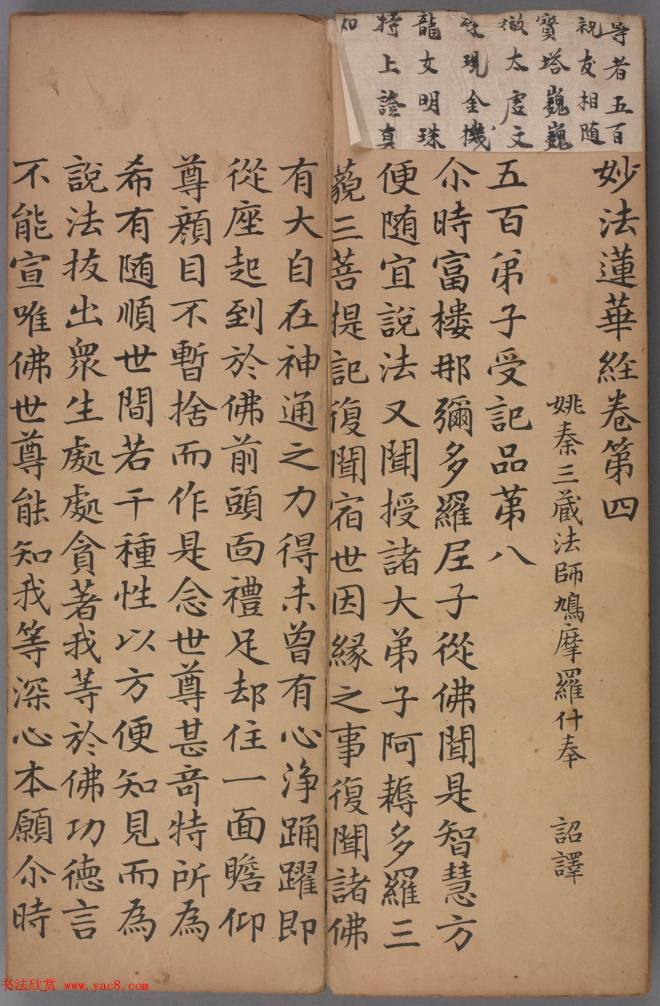 者五百
友相随
寶塔巍巍
徹太虛文
現全機
龍女明珠
持上證真
知
妙法蓮華経卷第四
姚秦三藏法師鳩摩羅什奉 詔譯
五百弟子受記品第八
尒時富樓那彌多羅尼子從佛聞是智慧方
便随宜說法又聞授諸大弟子阿耨多羅三
藐三菩提記復聞宿世因緣之事復聞諸佛
有大自在神通之力得未曾有心淨踊躍即
從座起到於佛前頭面禮足却住一面瞻仰
尊顏目不暫捨而作是念世尊甚竒特所為
希有随順世間若干種性以方便知見而為
說法拔出眾生處處貪著我等於佛功德言
不能宣唯佛世尊能知我等深心本願尒時
书法欣赏 www.yac8.com